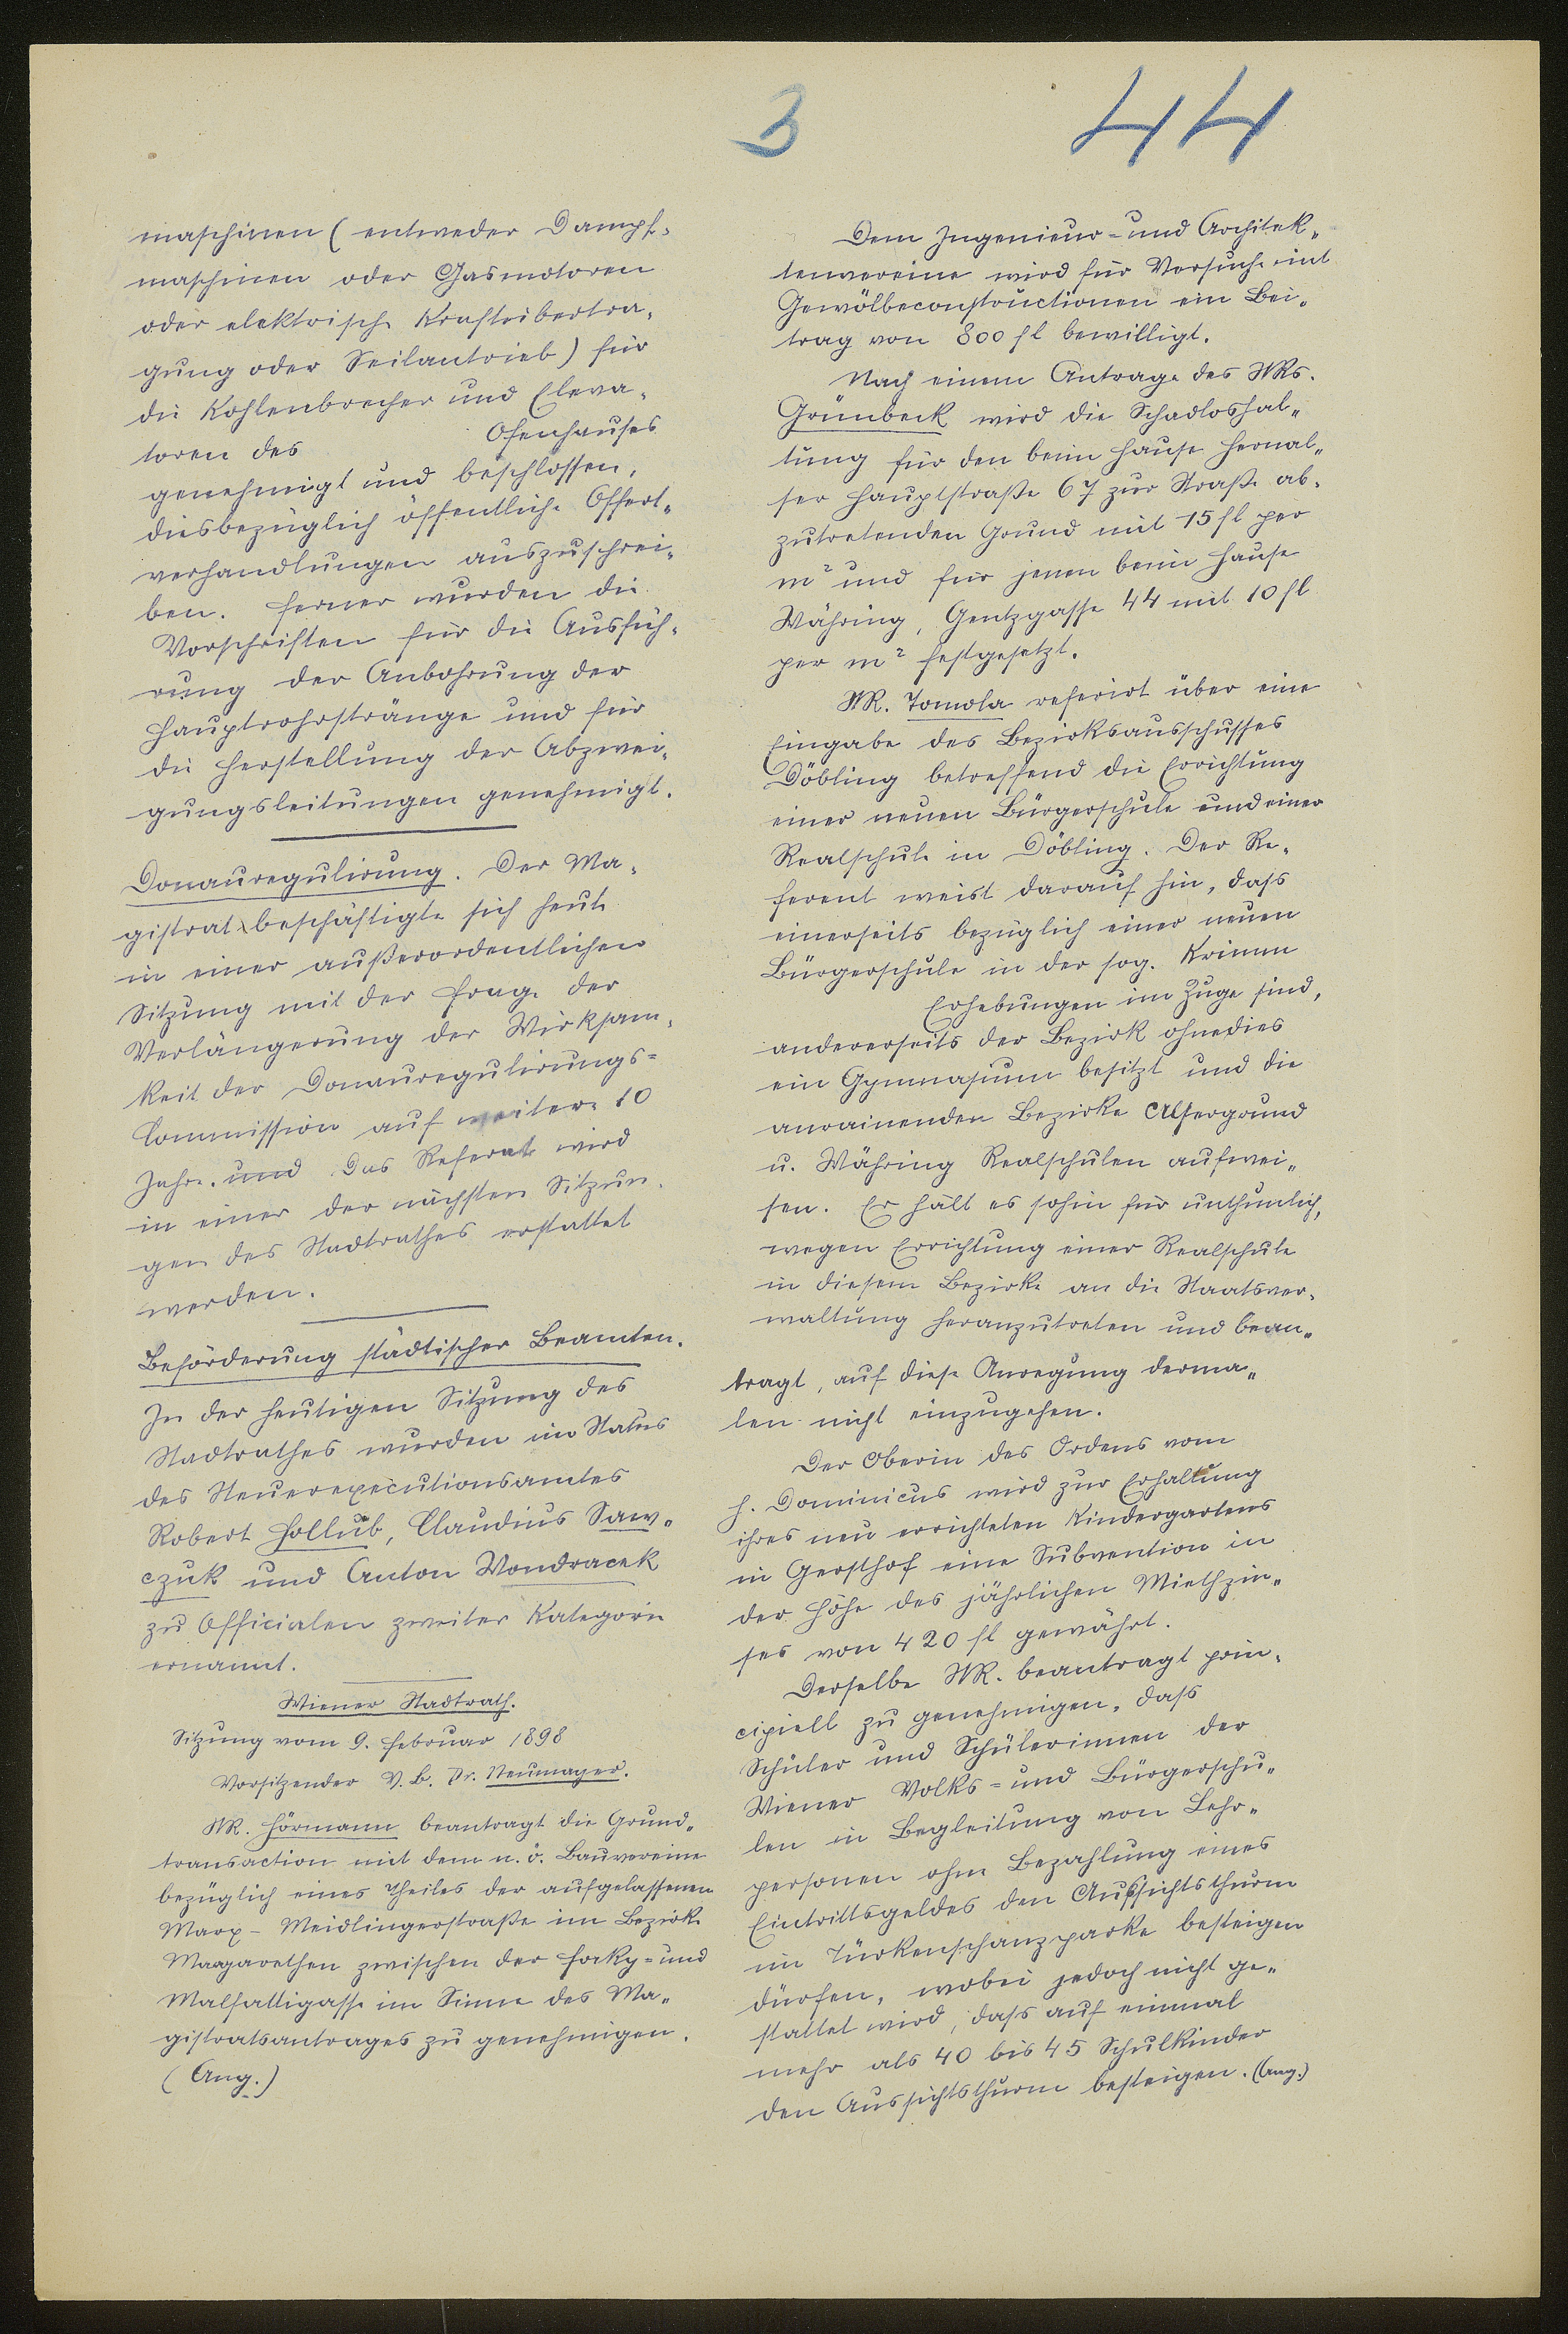 3
44
maschinen (entweder Dampf-
maschinen oder Gasmotoren
oder elektrische Kraftübertra-
gung oder Seilantrieb) für
die Kohlenbrecher und Eleva-
toren des Ofenhauses
genehmigt und beschlossen,
diesbezüglich öffentliche Offert-
verhandlungen auszuschrei-
ben. Ferner wurden die
Vorschriften für die Ausfüh-
rung der Anbohrung der
Hauptrohrstränge und für
die Herstellung der Abzwei-
gungsleitungen genehmigt.
Donauregulirung. Der Ma-
gistrat beschäftigte sich heute
in einer außerordentlichen
Sitzung mit der Frage der
Verlängerung der Wirksam-
keit der Donauregulirungs-
Commission auf weitere 10
Jahre. und Das Referat wird
in einer der nächsten Sitzun-
gen des Stadtrathes erstattet
werden.
Beförderung städtischer Beamten.
In der heutigen Sitzung des
Stadtrathes wurden im Status
des Steuerexecutionsamtes
Robert Hollub, Claudius Saw-
czuk und Anton Wondracek
zu Officialen zweiter Kategorie
ernannt.
Wiener Stadtrath.
Sitzung vom 9. Februar 1898
Vorsitzender V. B. Dr. Neumayer.
StR. Hörmann beantragt die Grund-
transaction mit dem n. ö. Bauvereine
bezüglich eines Theiles der aufgelassenen
Marx-Meidlingerstraße im Bezirke
Margarethen zwischen der Forky- und
Malfattigasse im Sinne des Ma-
gistratsantrages zu genehmigen.
(Ang.)
Dem Ingenieur- und Architek-
tenvereine wird für Versuche mit
Gewölbeconstructionen ein Bei-
trag von 800 fl bewilligt.
Nach einem Antrage des StRs.
Grünbeck wird die Schadloshal-
tung für den beim Hause Hernal-
ser Hauptstraße 67 zur Straße ab-
zutretenden Grund mit 15 fl per
m² und für jenen beim Hause
Währing, Gentzgasse 44 mit 10 fl
per m² festgesetzt.
StR. Tomola referirt über eine
Eingabe des Bezirksausschusses
Döbling betreffend die Errichtung
einer neuen Bürgerschule und einer
Realschule in Döbling. Der Re-
ferent weist darauf hin, dass
einerseits bezüglich einer neuen
Bürgerschule in der sog. Krimm
Erhebungen im Zuge sind,
andererseits der Bezirk ohnedies
ein Gymnasium besitzt und die
anrainenden Bezirke Alsergrund
u. Währing Realschulen aufwei-
sen. Er hält es sohin für unthunlich,
wegen Errichtung einer Realschule
in diesem Bezirke an die Staatsver-
waltung heranzutreten und bean-
tragt, auf diese Anregung derma-
len nicht einzugehen.
Der Oberin des Ordens vom
h. Dominicus wird zur Erhaltung
ihres neu errichteten Kindergartens
in Gersthof eine Subvention in
der Höhe des jährlichen Miethzin-
ses von 420 fl gewährt.
Derselbe StR. beantragt prin-
cipiell zu genehmigen, dass
Schüler und Schülerinnen der
Wiener Volks- und Bürgerschu-
len in Begleitung von Lehr-
personen ohne Bezahlung eines
Eintrittsgeldes den Aussichtsthurm
im Türkenschanzparke besteigen
dürfen, wobei jedoch nicht ge-
stattet wird, dass auf einmal
mehr als 40 bis 45 Schulkinder
den Aussichtsthurm besteigen. (Ang.)